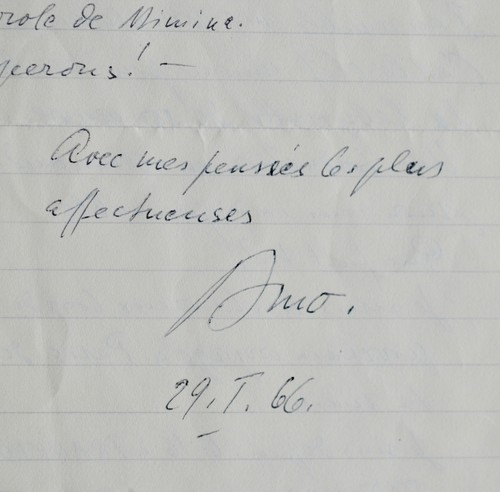 role de Mimina.
perons! —
Avec mes pensées les plus
affectueuses
Arno.
29. I. 66.